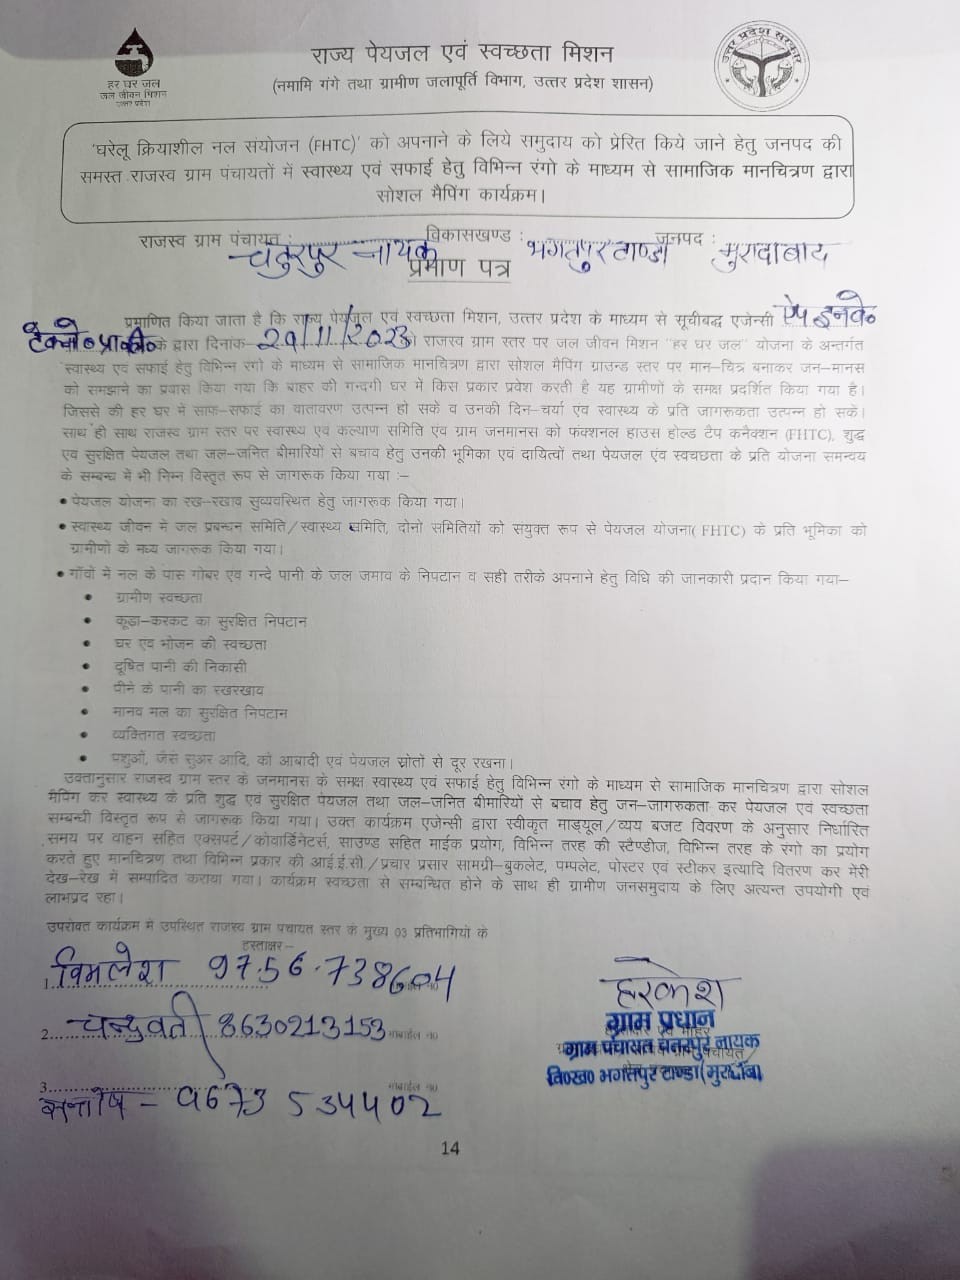 हर घर जल
जल जीवन मिशन
उत्तर प्रदेश
राज्य पेयजल एवं स्वच्छता मिशन
(नमामि गंगे तथा ग्रामीण जलापूर्ति विभाग, उत्तर प्रदेश शासन)
उत्तर प्रदेश सरकार
'घरेलू क्रियाशील नल संयोजन (FHTC)' को अपनाने के लिये समुदाय को प्रेरित किये जाने हेतु जनपद की
समस्त राजस्व ग्राम पंचायतों में स्वास्थ्य एवं सफाई हेतु विभिन्न रंगो के माध्यम से सामाजिक मानचित्रण द्वारा
सोशल मैपिंग कार्यक्रम।
राजस्व ग्राम पंचायत : चतुरपुर नायक विकासखण्ड : भगतपुर टाण्डा जनपद : मुरादाबाद
प्रमाण पत्र
प्रमाणित किया जाता है कि राज्य पेयजल एवं स्वच्छता मिशन, उत्तर प्रदेश के माध्यम से सूचीबद्ध एजेन्सी
टेक्नो० प्रा०लि० के द्वारा दिनांक– 29/11/2023 को राजस्व ग्राम स्तर पर जल जीवन मिशन "हर घर जल" योजना के अन्तर्गत
स्वास्थ्य एवं सफाई हेतु विभिन्न रंगो के माध्यम से सामाजिक मानचित्रण द्वारा सोशल मैपिंग ग्राउन्ड स्तर पर मान–चित्र बनाकर जन–मानस
को समझाने का प्रयास किया गया कि बाहर की गन्दगी घर में किस प्रकार प्रवेश करती है यह ग्रामीणों के समक्ष प्रदर्शित किया गया है।
जिससे की हर घर में साफ–सफाई का वातावरण उत्पन्न हो सकें व उनकी दिन–चर्या एवं स्वास्थ्य के प्रति जागरूकता उत्पन्न हो सकें।
साथ ही साथ राजस्व ग्राम स्तर पर स्वास्थ्य एंव कल्याण समिति एंव ग्राम जनमानस को फंक्शनल हाउस होल्ड टैप कनैक्शन (FHTC), शुद्ध
एवं सुरक्षित पेयजल तथा जल–जनित बीमारियों से बचाव हेतु उनकी भूमिका एवं दायित्वों तथा पेयजल एंव स्वच्छता के प्रति योजना समन्वय
के सम्बन्ध में भी निम्न विस्तृत रूप से जागरूक किया गया :–
• पेयजल योजना का रख–रखाव सुव्यवस्थित हेतु जागरूक किया गया।
• स्वास्थ्य जीवन में जल प्रबन्धन समिति/स्वास्थ्य समिति, दोनो समितियों को संयुक्त रूप से पेयजल योजना( FHTC) के प्रति भूमिका को
ग्रामीणों के मध्य जागरूक किया गया।
• गाँवों में नल के पास गोबर एवं गन्दे पानी के जल जमाव के निपटान व सही तरीके अपनाने हेतु विधि की जानकारी प्रदान किया गया–
• ग्रामीण स्वच्छता
• कूडा–करकट का सुरक्षित निपटान
• घर एवं भोजन की स्वच्छता
• दूषित पानी की निकासी
• पीने के पानी का रखरखाव
• मानव मल का सुरक्षित निपटान
• व्यक्तिगत स्वच्छता
• पशुओं, जैसे सुअर आदि, को आबादी एवं पेयजल स्रोतों से दूर रखना।
उक्तानुसार राजस्व ग्राम स्तर के जनमानस के समक्ष स्वास्थ्य एवं सफाई हेतु विभिन्न रंगो के माध्यम से सामाजिक मानचित्रण द्वारा सोशल
मैपिंग कर स्वास्थ्य के प्रति शुद्ध एवं सुरक्षित पेयजल तथा जल–जनित बीमारियों से बचाव हेतु जन–जागरुकता कर पेयजल एवं स्वच्छता
सम्बन्धी विस्तृत रूप से जागरूक किया गया। उक्त कार्यक्रम एजेन्सी द्वारा स्वीकृत माड्यूल/व्यय बजट विवरण के अनुसार निर्धारित
समय पर वाहन सहित एक्सपर्ट/कोवार्डिनेटर्स, साउण्ड सहित माईक प्रयोग, विभिन्न तरह की स्टैण्डीज, विभिन्न तरह के रंगो का प्रयोग
करते हुए मानचित्रण तथा विभिन्न प्रकार की आई.ई.सी./प्रचार प्रसार सामग्री–बुकलेट, पम्पलेट, पोस्टर एवं स्टीकर इत्यादि वितरण कर मेरी
देख–रेख में सम्पादित कराया गया। कार्यक्रम स्वच्छता से सम्बन्धित होने के साथ ही ग्रामीण जनसमुदाय के लिए अत्यन्त उपयोगी एवं
लाभप्रद रहा।
उपरोक्त कार्यक्रम में उपस्थित राजस्व ग्राम पंचायत स्तर के मुख्य 03 प्रतिभागियों के
हस्ताक्षर–
1. विमलेश 9756738604
2. चन्द्रवती 8630213153 मोबाईल न0
3. सन्तोष – 9673534402 मोबाईल न0
हरकेश
ग्राम प्रधान
ग्राम पंचायत चतरपुर नायक
वि०ख० भगतपुर टाण्डा (मुरादाबाद)
14